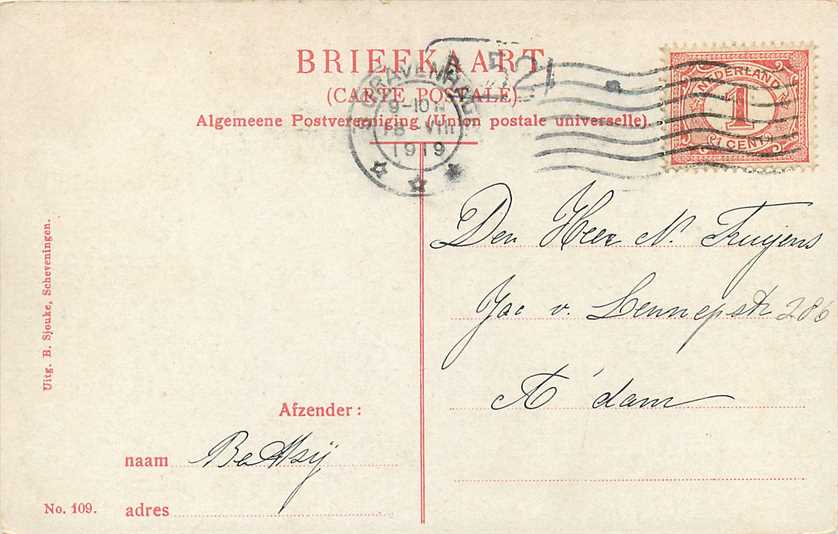 BRIEFKAART
(CARTE POSTALE).
Algemeene Postvereeniging (Union postale universelle).
'S GRAVENHAGE
9-10
8 VIII
1919
NEDERLAND
1
CENT
Den Heer N. Truijens
Jac v. Lennepstr 286
A'dam
Uitg. B. Sjouke, Scheveningen.
Afzender:
naam Betsij
adres
No. 109.